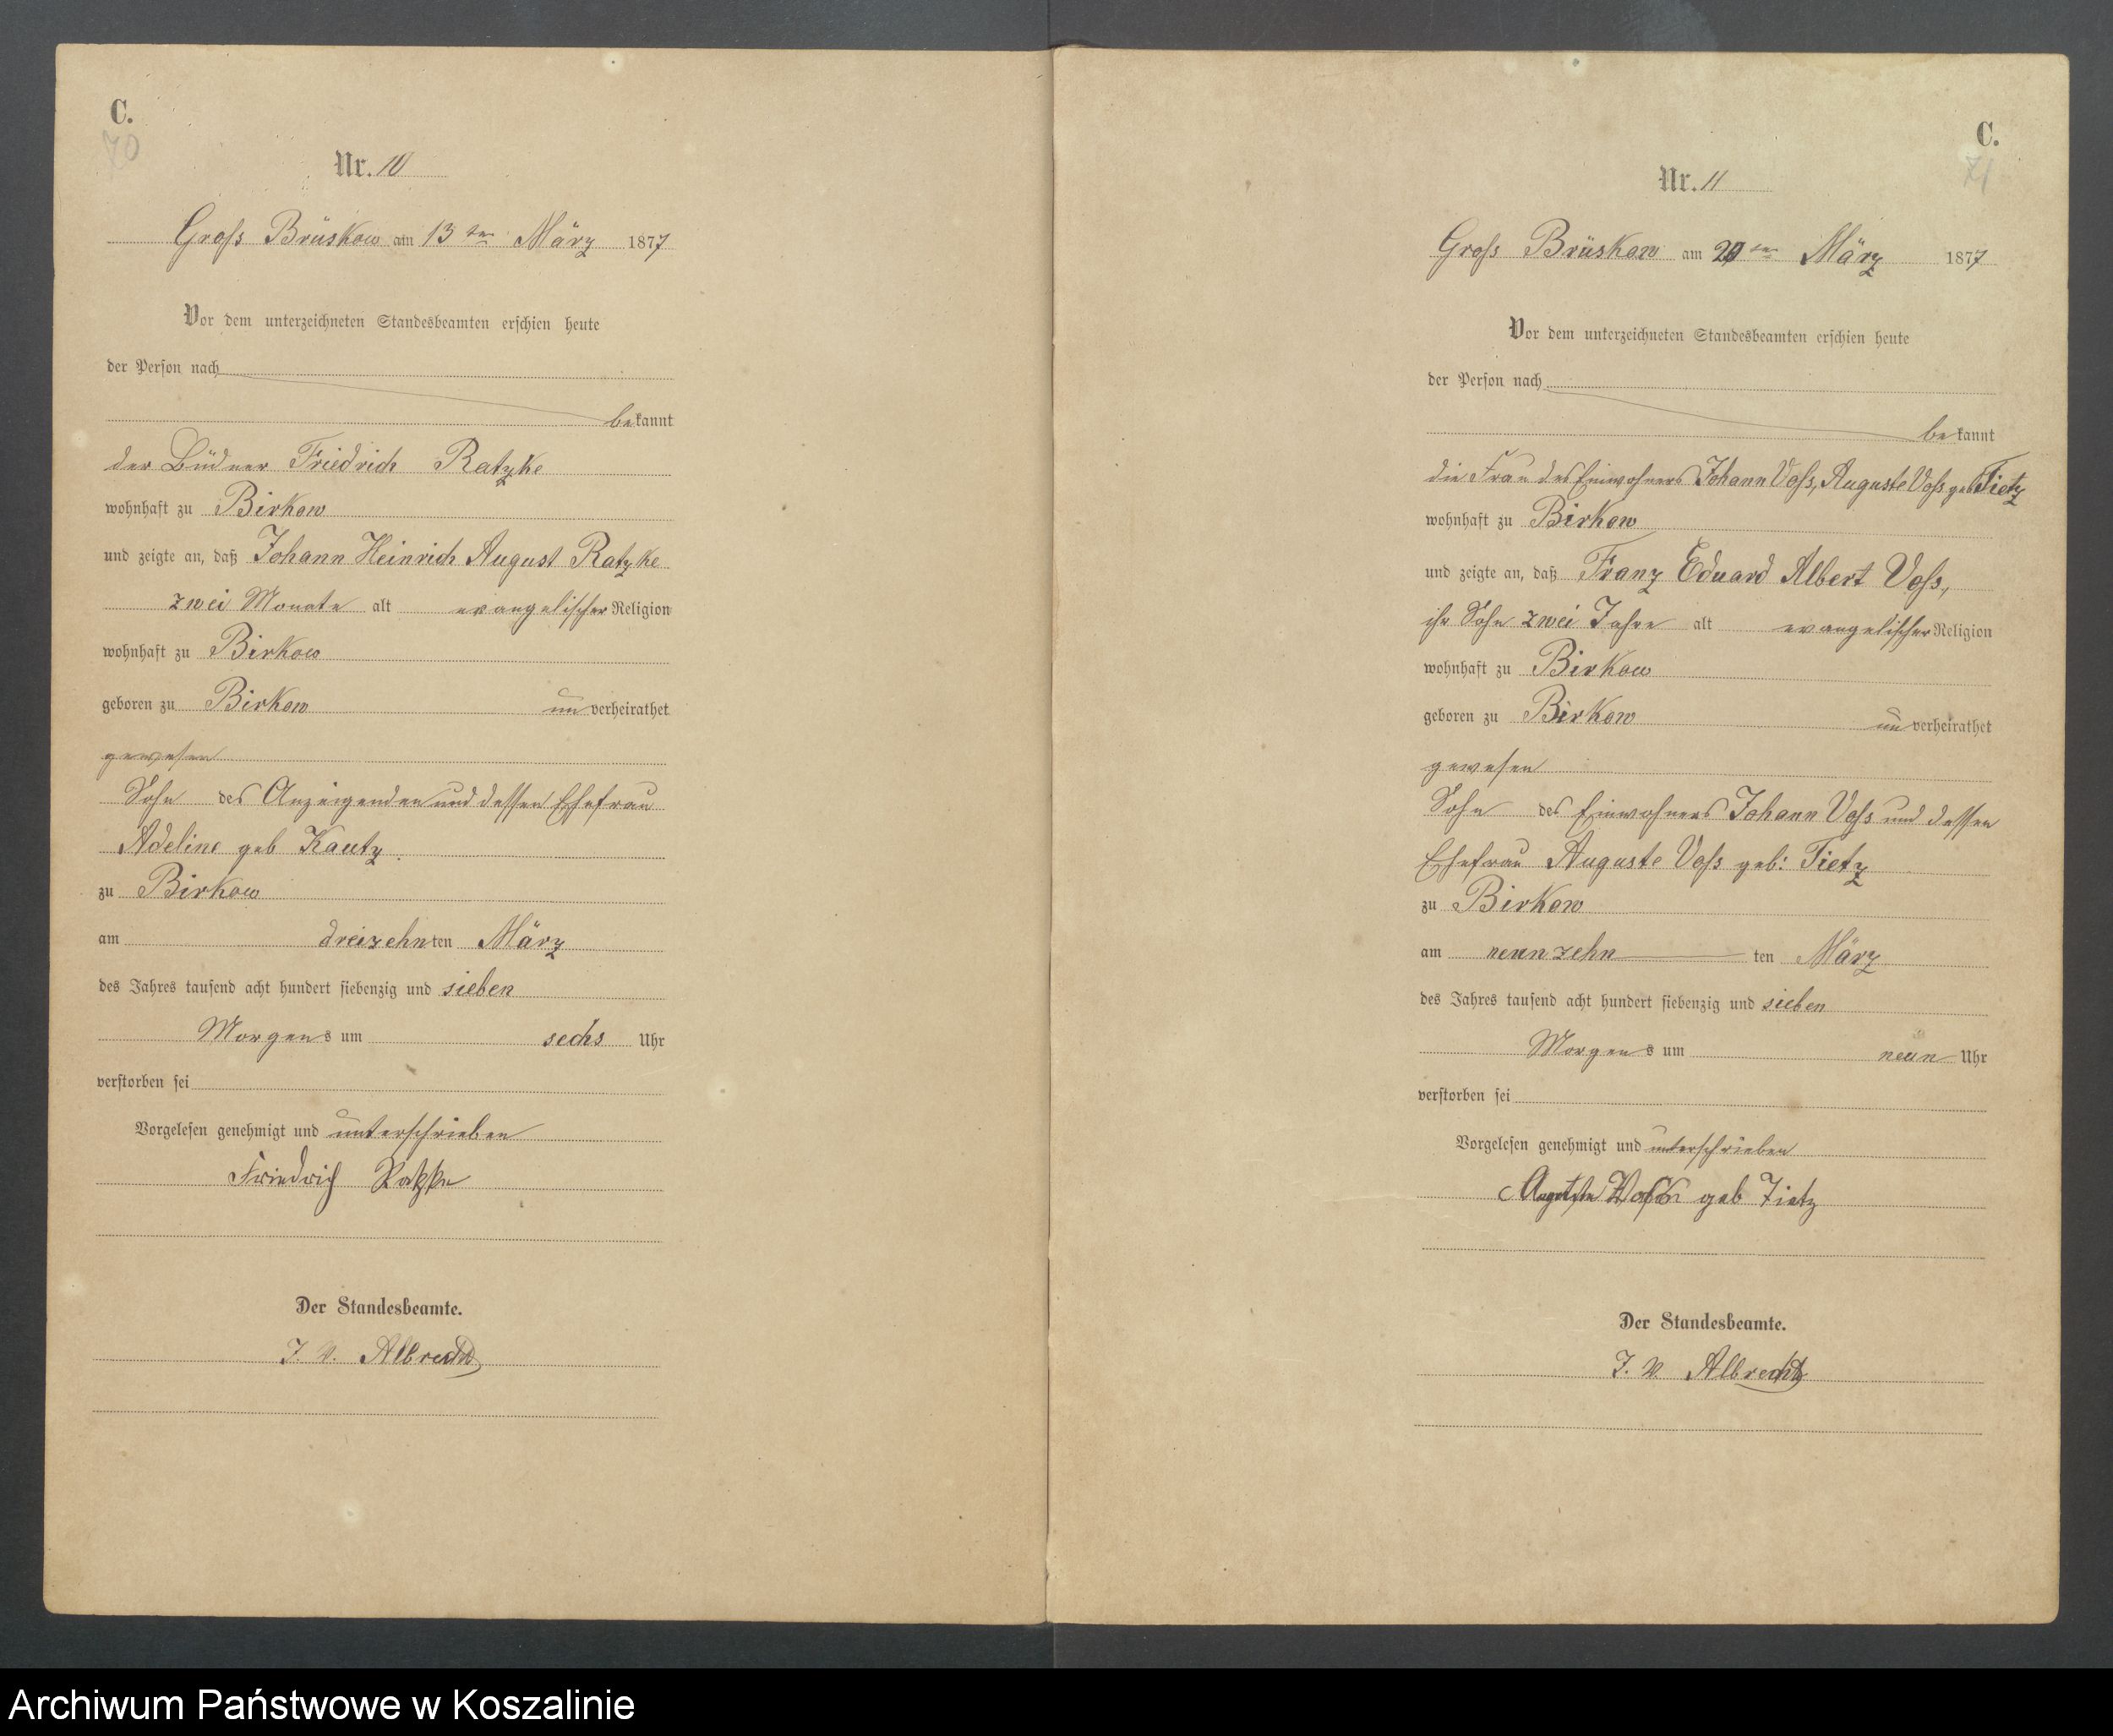 C.
70
Nr. 10
Groſs Brüskow am 13 ten März 1877
Vor dem unterzeichneten Standesbeamten erſchien heute
der Perſon nach
bekannt
der Büdner Friedrich Ratzke
wohnhaft zu Birkow
und zeigte an, daß Johann Heinrich August Ratzke
zwei Monate alt evangeliſcher Religion
wohnhaft zu Birkow
geboren zu Birkow unverheirathet
geweſen
Sohn des Anzeigenden und deſſen Ehefrau
Adeline geb Kautz.
zu Birkow
am dreizehnten März
des Jahres tauſend acht hundert ſiebenzig und sieben
Morgens um sechs Uhr
verſtorben ſei
Vorgeleſen genehmigt und unterſchrieben
Friedrich Ratzke
Der Standesbeamte.
J. V. Albrecht
C.
71
Nr. 11
Groſs Brüskow am ten März 1877
Vor dem unterzeichneten Standesbeamten erſchien heute
der Perſon nach
bekannt
die Frau des Einwohners Johann Voſs, Auguste Voſs geb Tietz
wohnhaft zu Birkow
und zeigte an, daß Franz Eduard Albert Voſs,
ihr Sohn zwei Jahre alt evangeliſcher Religion
wohnhaft zu Birkow
geboren zu Birkow unverheirathet
geweſen
Sohn des Einwohners Johann Voſs und deſſen
Ehefrau Auguste Voſs geb: Tietz
zu Birkow
am neunzehn ten März
des Jahres tauſend acht hundert ſiebenzig und sieben
Morgens um neun Uhr
verſtorben ſei
Vorgeleſen genehmigt und unterſchrieben
Auguste Voſs geb Tietz
Der Standesbeamte.
J. V. Albrecht
Archiwum Państwowe w Koszalinie